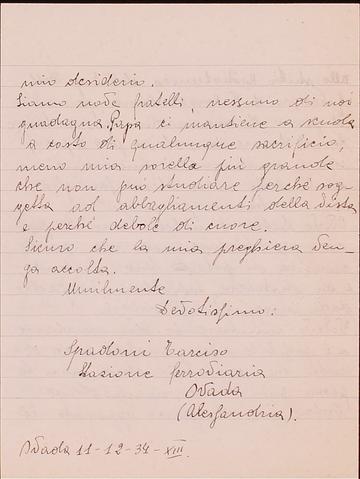 mio desiderio.
Siamo nove fratelli, nessuno di noi
guadagna. Papà ci mantiene a scuola
a costo di qualunque sacrificio,
meno mia sorella più grande
che non può studiare perché sog-
getta ad abbagliamenti della vista
e perché debole di cuore.
Sicuro che la mia preghiera ven-
ga accolta.
Umilmente
Devotissimo:
Spadoni Tarciso
Stazione Ferroviaria
Ovada
(Alessandria).
Ovada 11-12-34-XIII.